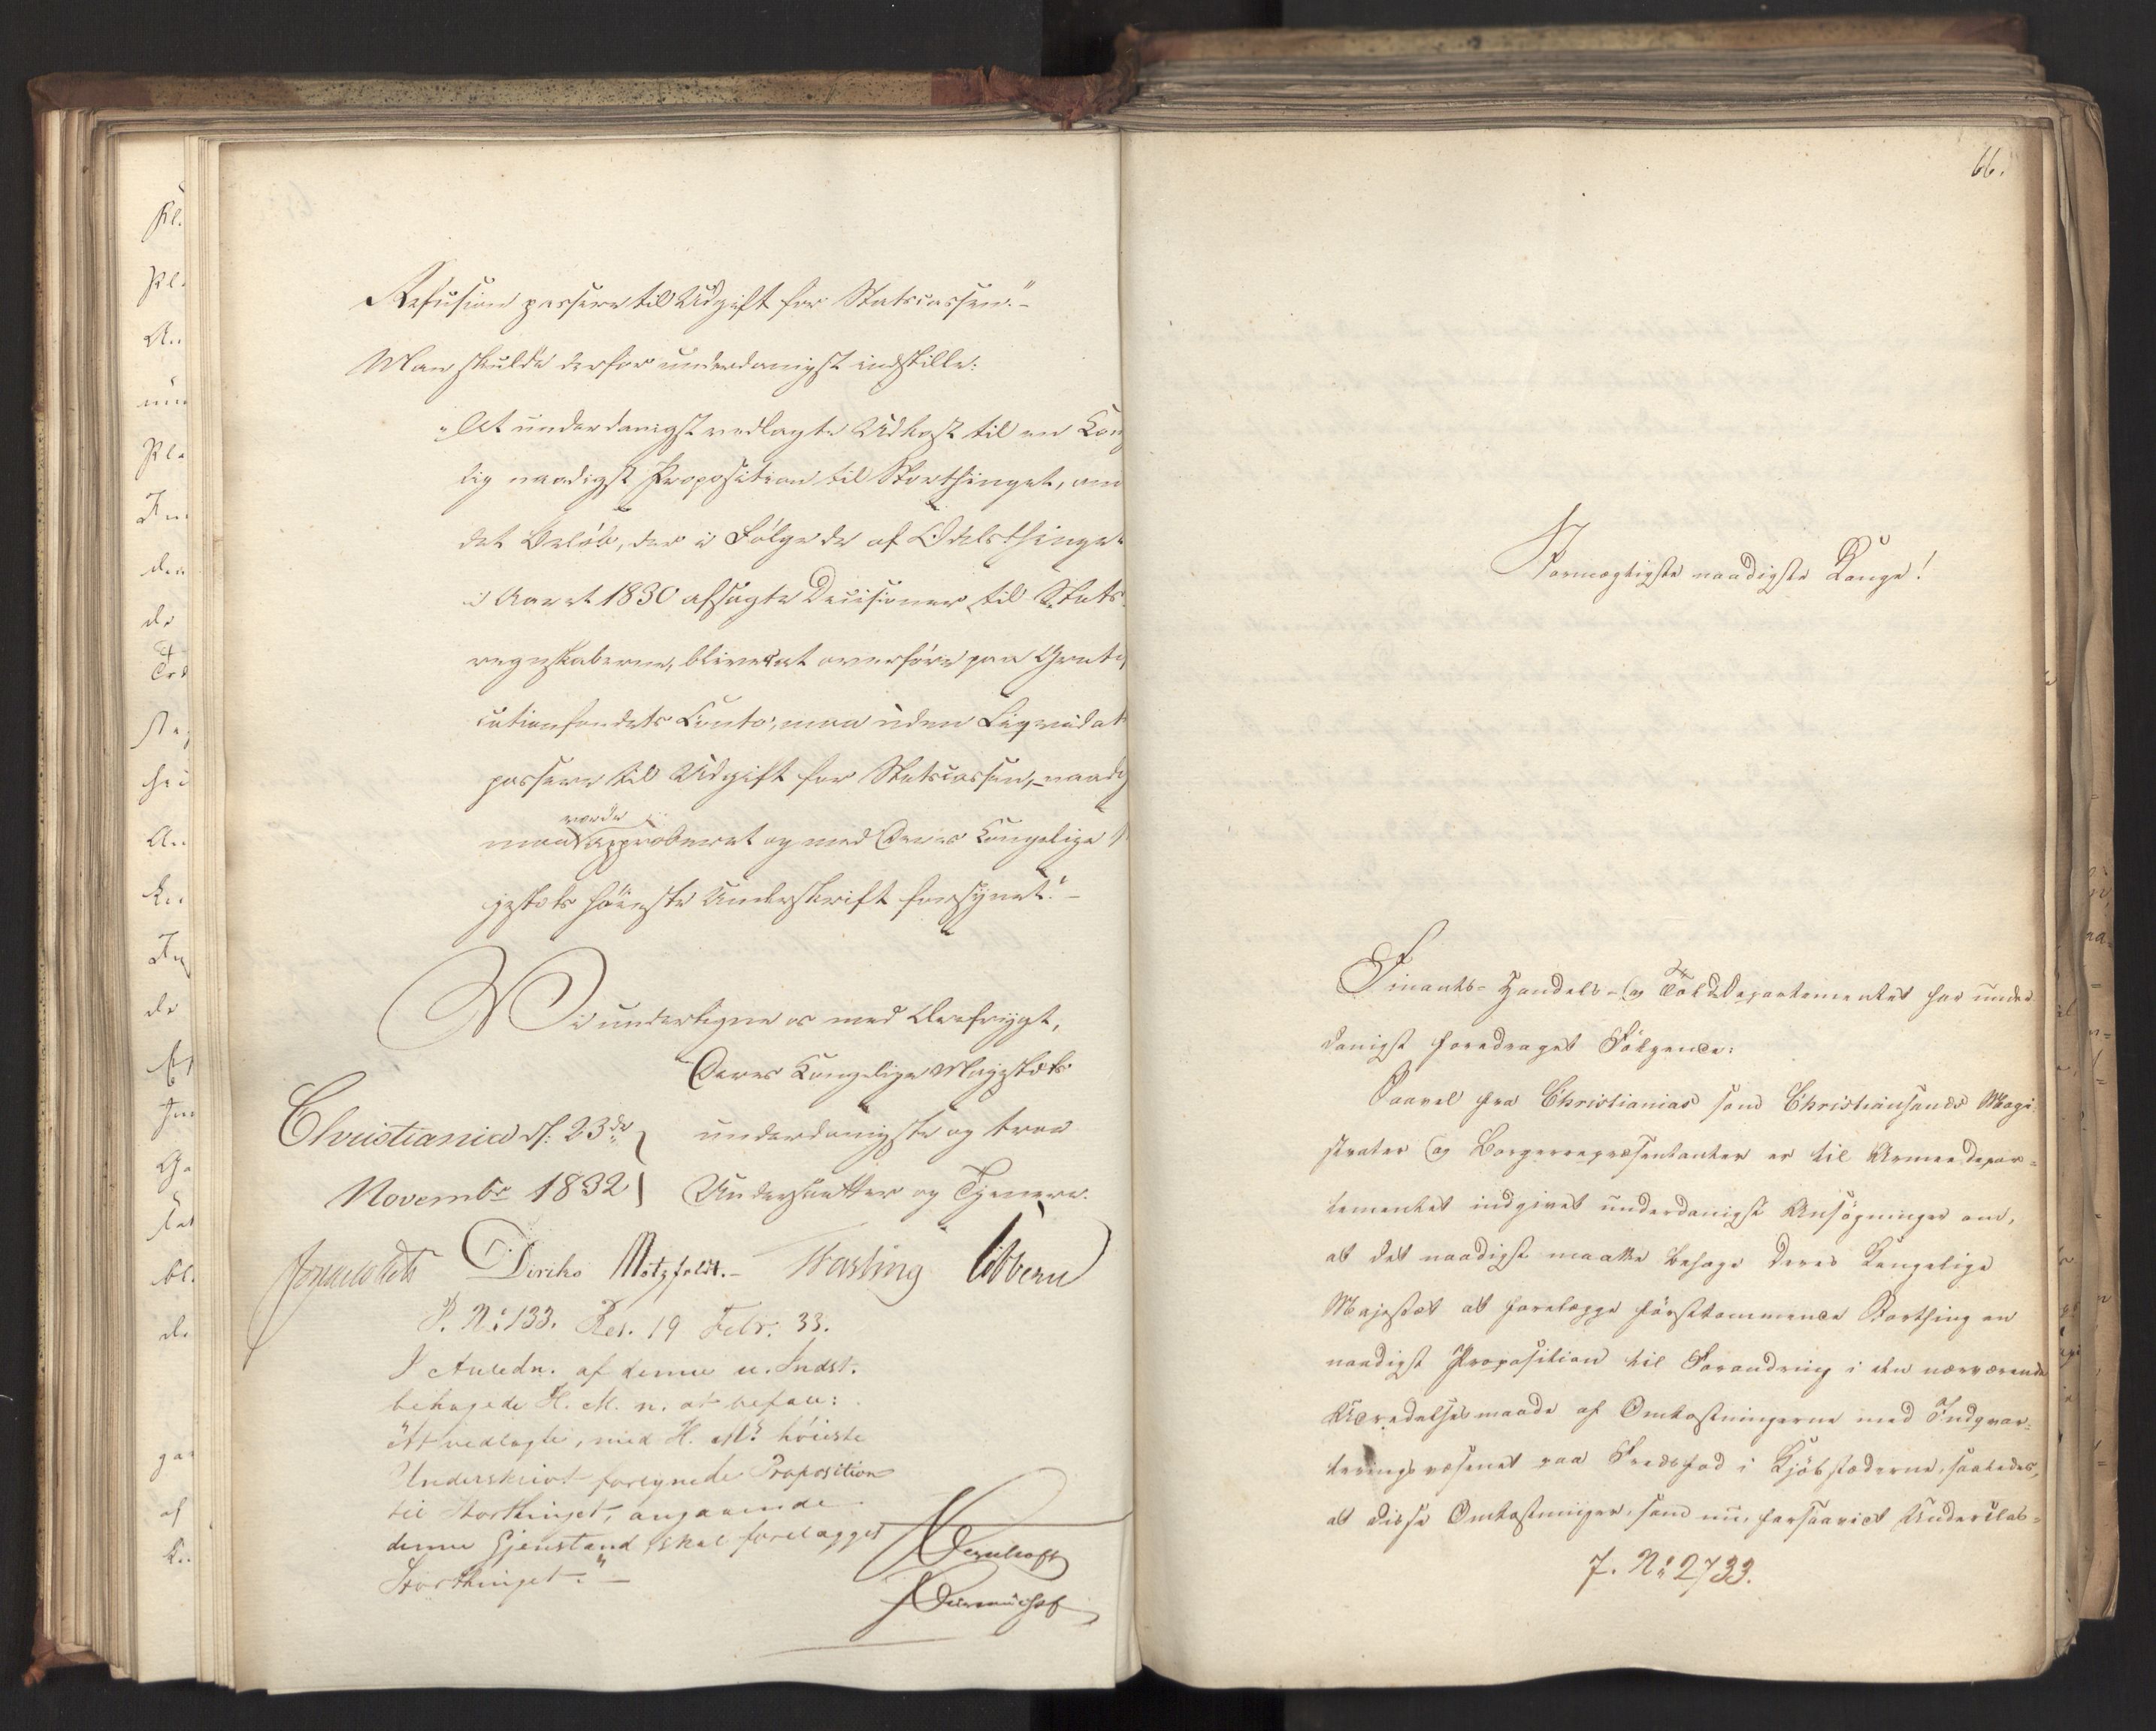 Refusion passere til Udgift for Statscassen."-
Man skulde derfor underdanigst indstille:
"At underdanigst vedlagte Udkast til en Kon
lig naadigst Proposition til Storthinget, om
det Beløb, der i Følge de af Odelsthinget
i Aaret 1830 afsagte Decisioner til Stats
regnskaberne, bliver at overføre paa Grati
cationsfondets Conto, maa uden Liqvidat
passere til Udgift for Statscassen,- naadig
maa vorde approberet og med Deres Kongelige
jestæts høieste Underskrift forsynet."-
Vi undertegne os med Ærefrygt,
Deres Kongelige Majestæts
Christiania d: 23de underdanigste og troe
Novembr 1832 Undersaatter og Tjenere.
Diriks Motzfeldt.- Fasting Sibbern
P. No 133. Res. 19 Febr. 33.
I Anledn. af denne u. Indst.
behagede H. M. n. at befale:
"At vedlagte, med H. Ms høieste
Underskrivt forsynede Proposition
til Storthinget, angaaende
denne Gjenstand skal forelægges
Storthinget."-
66.
Stormægtigste naadigste Konge!
Finants- Handels- og Told Departementet har under
danigst foredraget Følgende:
Saavel fra Christianias som Christiansands Magi
strater og Borgerrepræsentanter er til Armeedepar-
tementet indgivet underdanigst Ansøgninger om,
at det naadigst maatte behage Deres Kongelige
Majestæt at forelægge førstkommende Storthing en
naadigst Proposition til Forandring i den nærværende
Udredelsesmaade af Omkostningerne med Indqvar-
teringsvæsenet paa Fredsfod i Kjøbstæderne, saaledes,
at disse Omkostninger, som nu, forsaavidt Underclas-
7. No 2733.